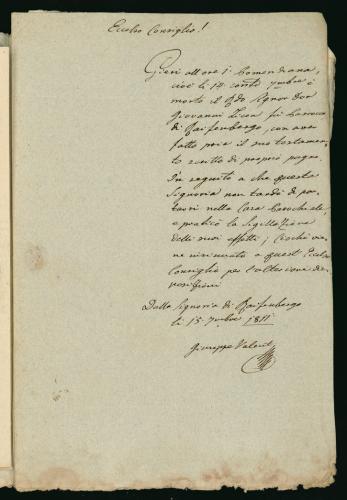 Eccelso Consiglio!
Gieri all'ore 1: pomeridiana,
cioè li 14 cor 7mbre è
morto il Rdo Signor Don
Giovanni fù Parroco
di Raifenbergo, con aver
fatto pria il suo testamen-
to scritto di proprio pugno.
In seguito a che questa
Signoria non tardò di por-
tarsi nella Casa Parochiale,
e praticò la Sigillazione
delli suoi effetti; locchè vie-
ne a quest' Eccelso
Consiglio per l'ulteriore di-
sposizioni
Dalla Signoria di Raifenbergo
li 15 7mbre 1811
Giuseppe